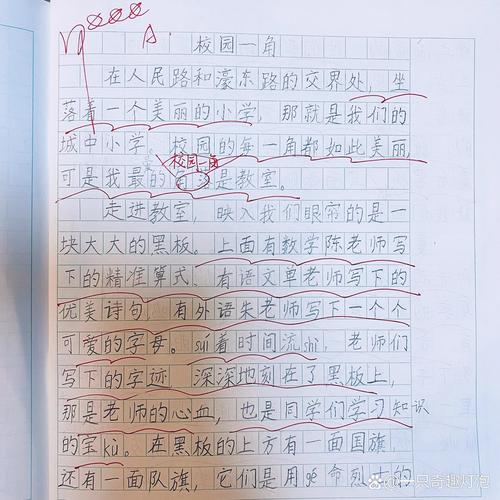 A.
校园一角
在人民路和濠东路的交界处，坐
落着一个美丽的小学，那就是我们的
城中小学。校园的每一角都如此美丽，
校园一角
可是我最的是教室。
走进教室，映入我们眼帘的是一
块大大的黑板。上面有数学陈老师写
下的精准算式，有语文单老师写下的
优美诗句，有外语朱老师写下一个个
可爱的字母。suí着时间流shì，老师们
写下的字迹深深地刻在了黑板上，
那是老师的心血，也是同学们学习知识
的宝kù。在黑板的上方有一面国旗，
还有一面队旗，它们是用gé命烈士的
一只奇趣灯泡